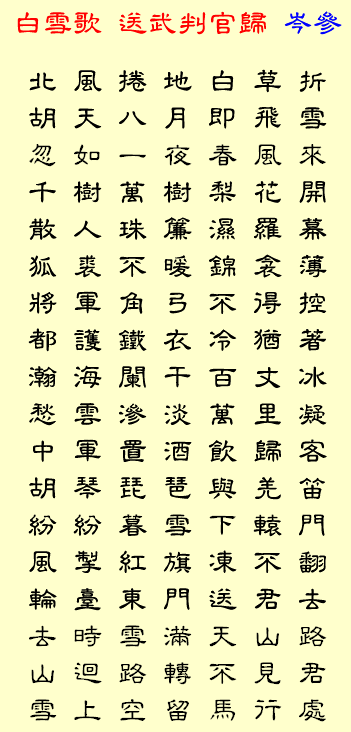 白雪歌 送武判官歸 岑參
北風捲地白草折
胡天八月即飛雪
忽如一夜春風來
千樹萬樹梨花開
散人珠簾濕羅幕
狐裘不暖錦衾薄
將軍角弓不得控
都護鐵衣冷猶著
瀚海闌干百丈冰
愁雲滲淡萬里凝
中軍置酒飲歸客
胡琴琵琶與羌笛
紛紛暮雪下轅門
風掣紅旗凍不翻
輪臺東門送君去
去時雪滿天山路
山迴路轉不見君
雪上空留馬行處